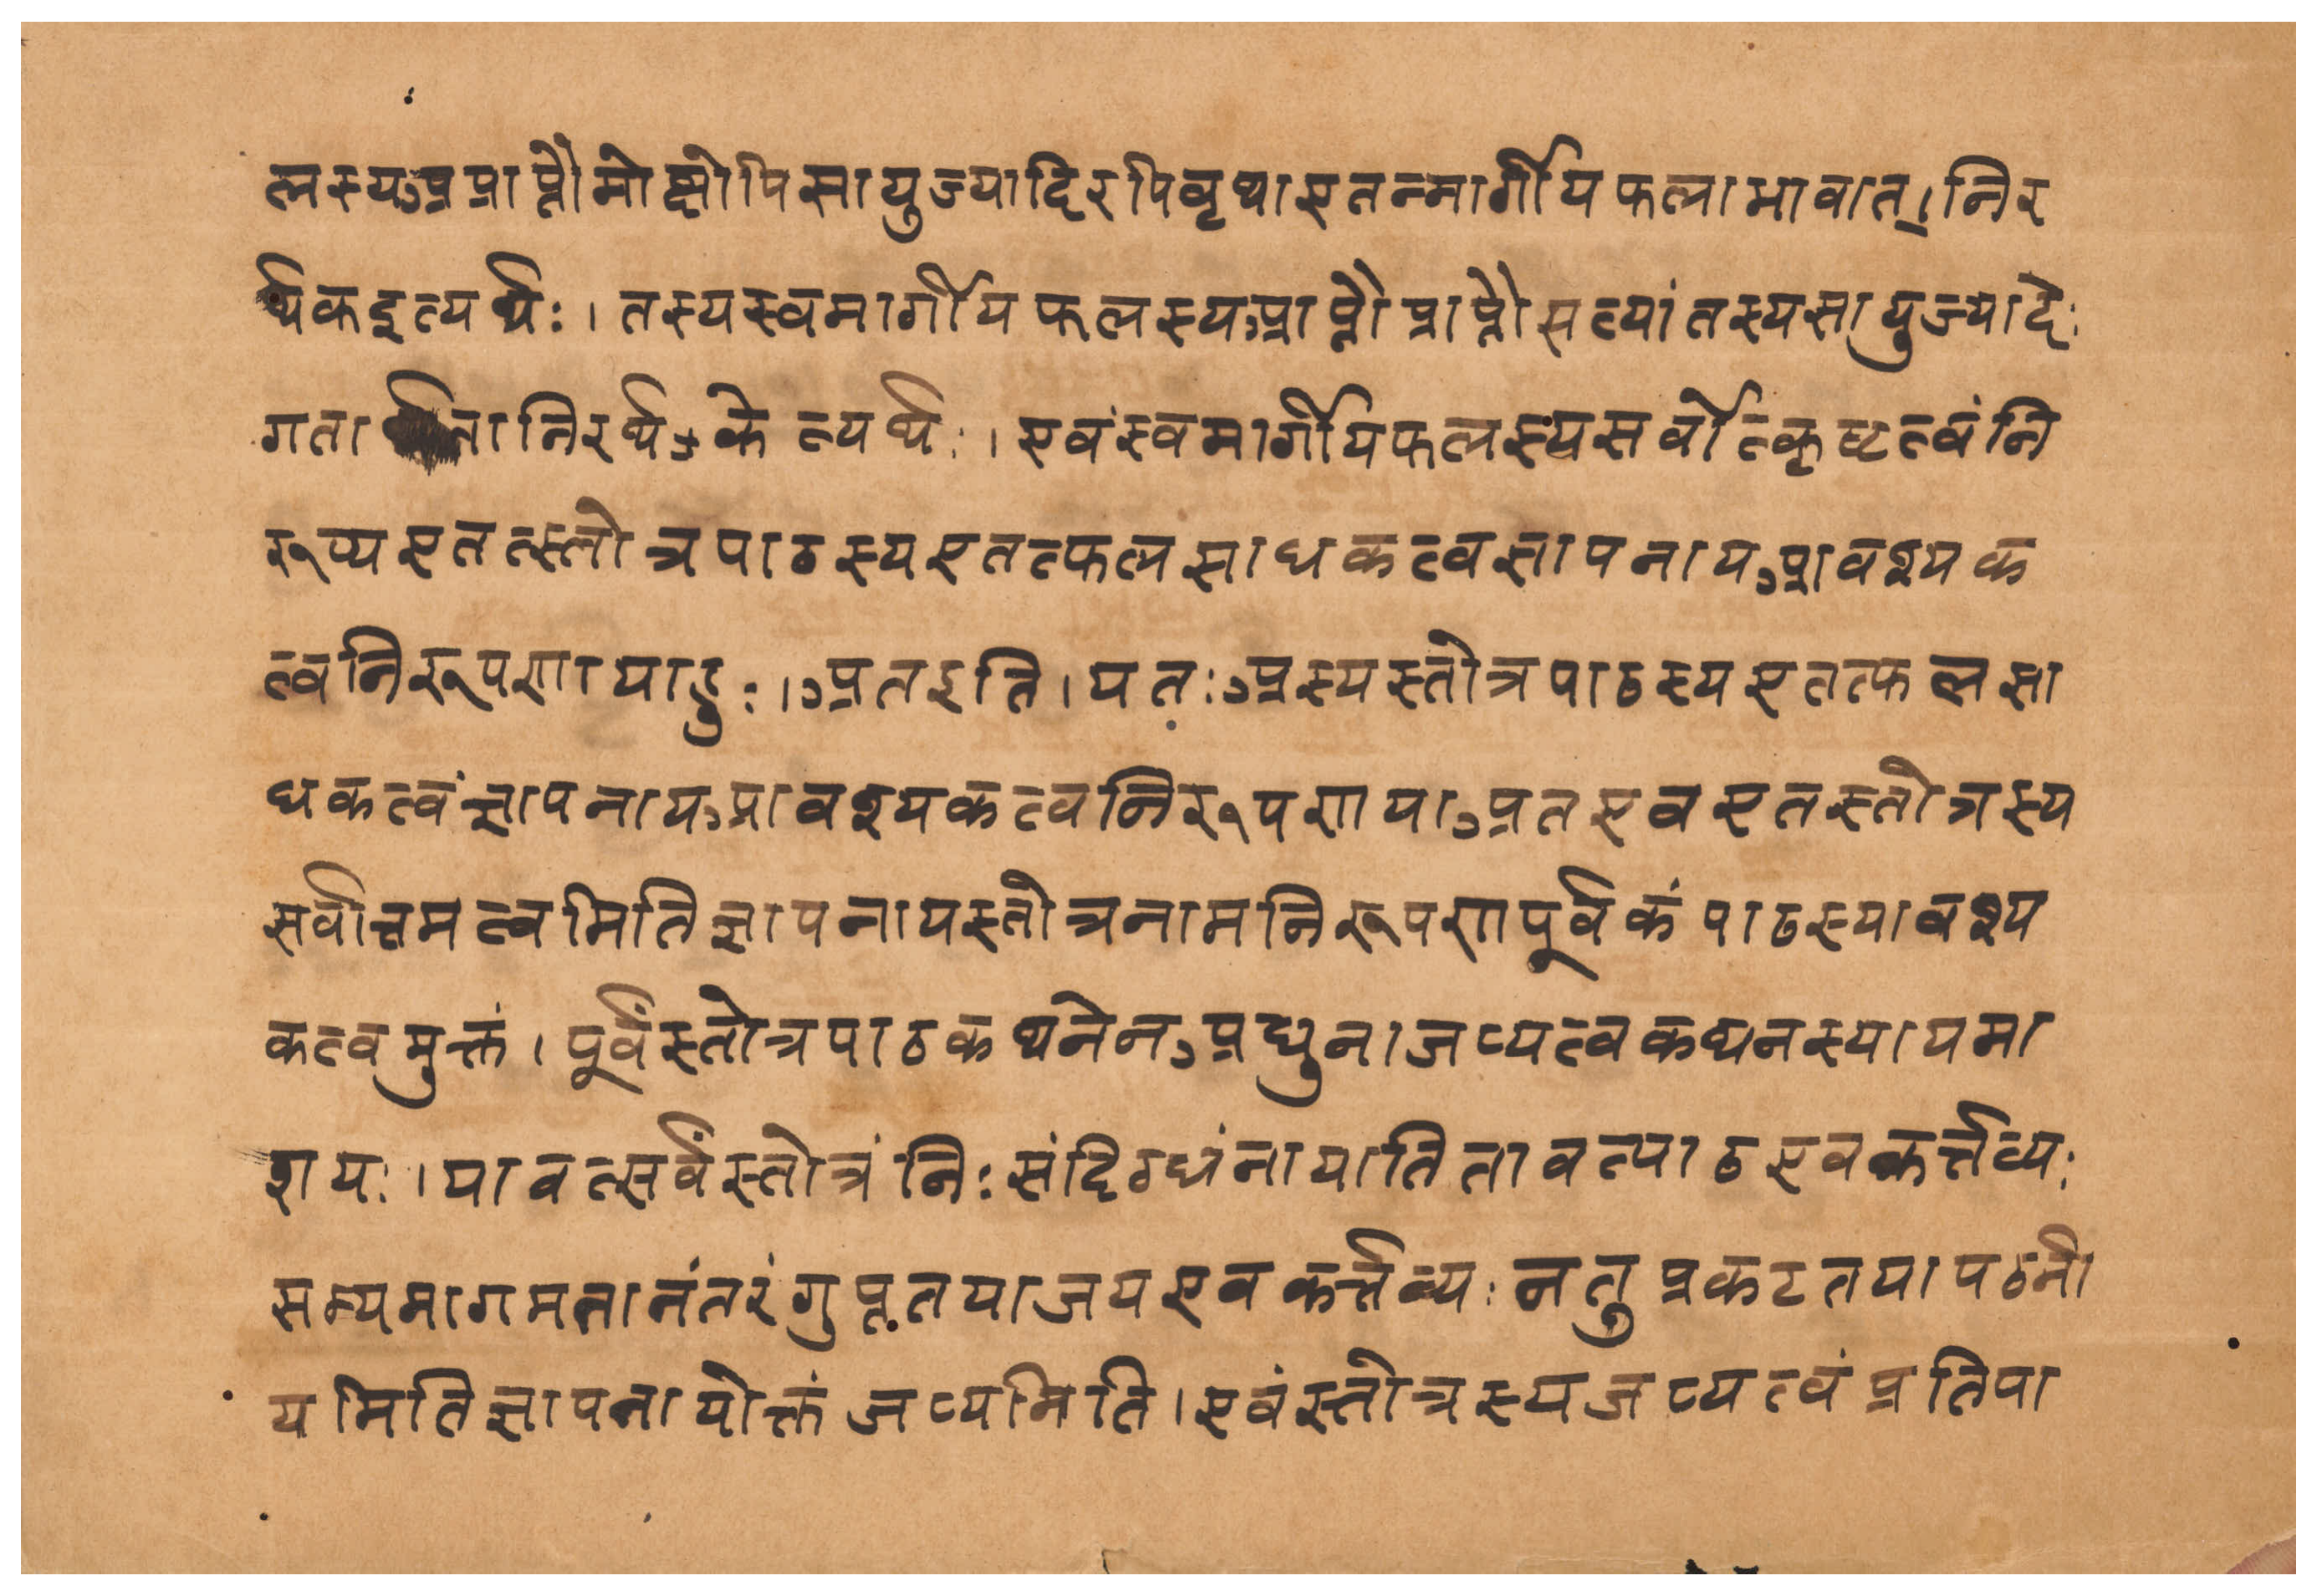 लस्यअप्राप्तौमोक्षोपिसायुज्यादिरपिवृथाएतन्मार्गीयफलाभावात्।निर
र्थकइत्यर्थः।तस्यस्वमार्गीयफलस्यप्राप्तौप्राप्तौसत्यांतस्यसायुज्यादेः
गतार्थतानिरर्थकेत्यर्थः।एवंस्वमार्गीयफलस्यसर्वोत्कृष्टत्वंनि
रूप्यएतत्स्तोत्रपाठस्यएतत्फलसाधकत्वज्ञापनायआवश्यक
त्वनिरूपणायाहुः।अतइति।यतःअस्यस्तोत्रपाठस्यएतत्फलसा
धकत्वंज्ञापनायआवश्यकत्वनिरूपणायाअतएवएतस्तोत्रस्य
सर्वोत्तमत्वमितिज्ञापनायस्तोत्रनामनिरूपणपूर्वकंपाठस्यावश्य
कत्वमुक्तं।पूर्वंस्तोत्रपाठकथनेनअधुनाजप्यत्वकथनस्यायमा
शयः।यावत्सर्वंस्तोत्रंनिःसंदिग्धंनायातितावत्पाठएवकर्त्तव्यः
सम्यगागमनानंतरंगुप्ततयाजपएवकर्त्तव्यःनतुप्रकटतयापठनी
यमितिज्ञापनायोक्तंजप्यमिति।एवंस्तोत्रस्यजप्यत्वंप्रतिपा